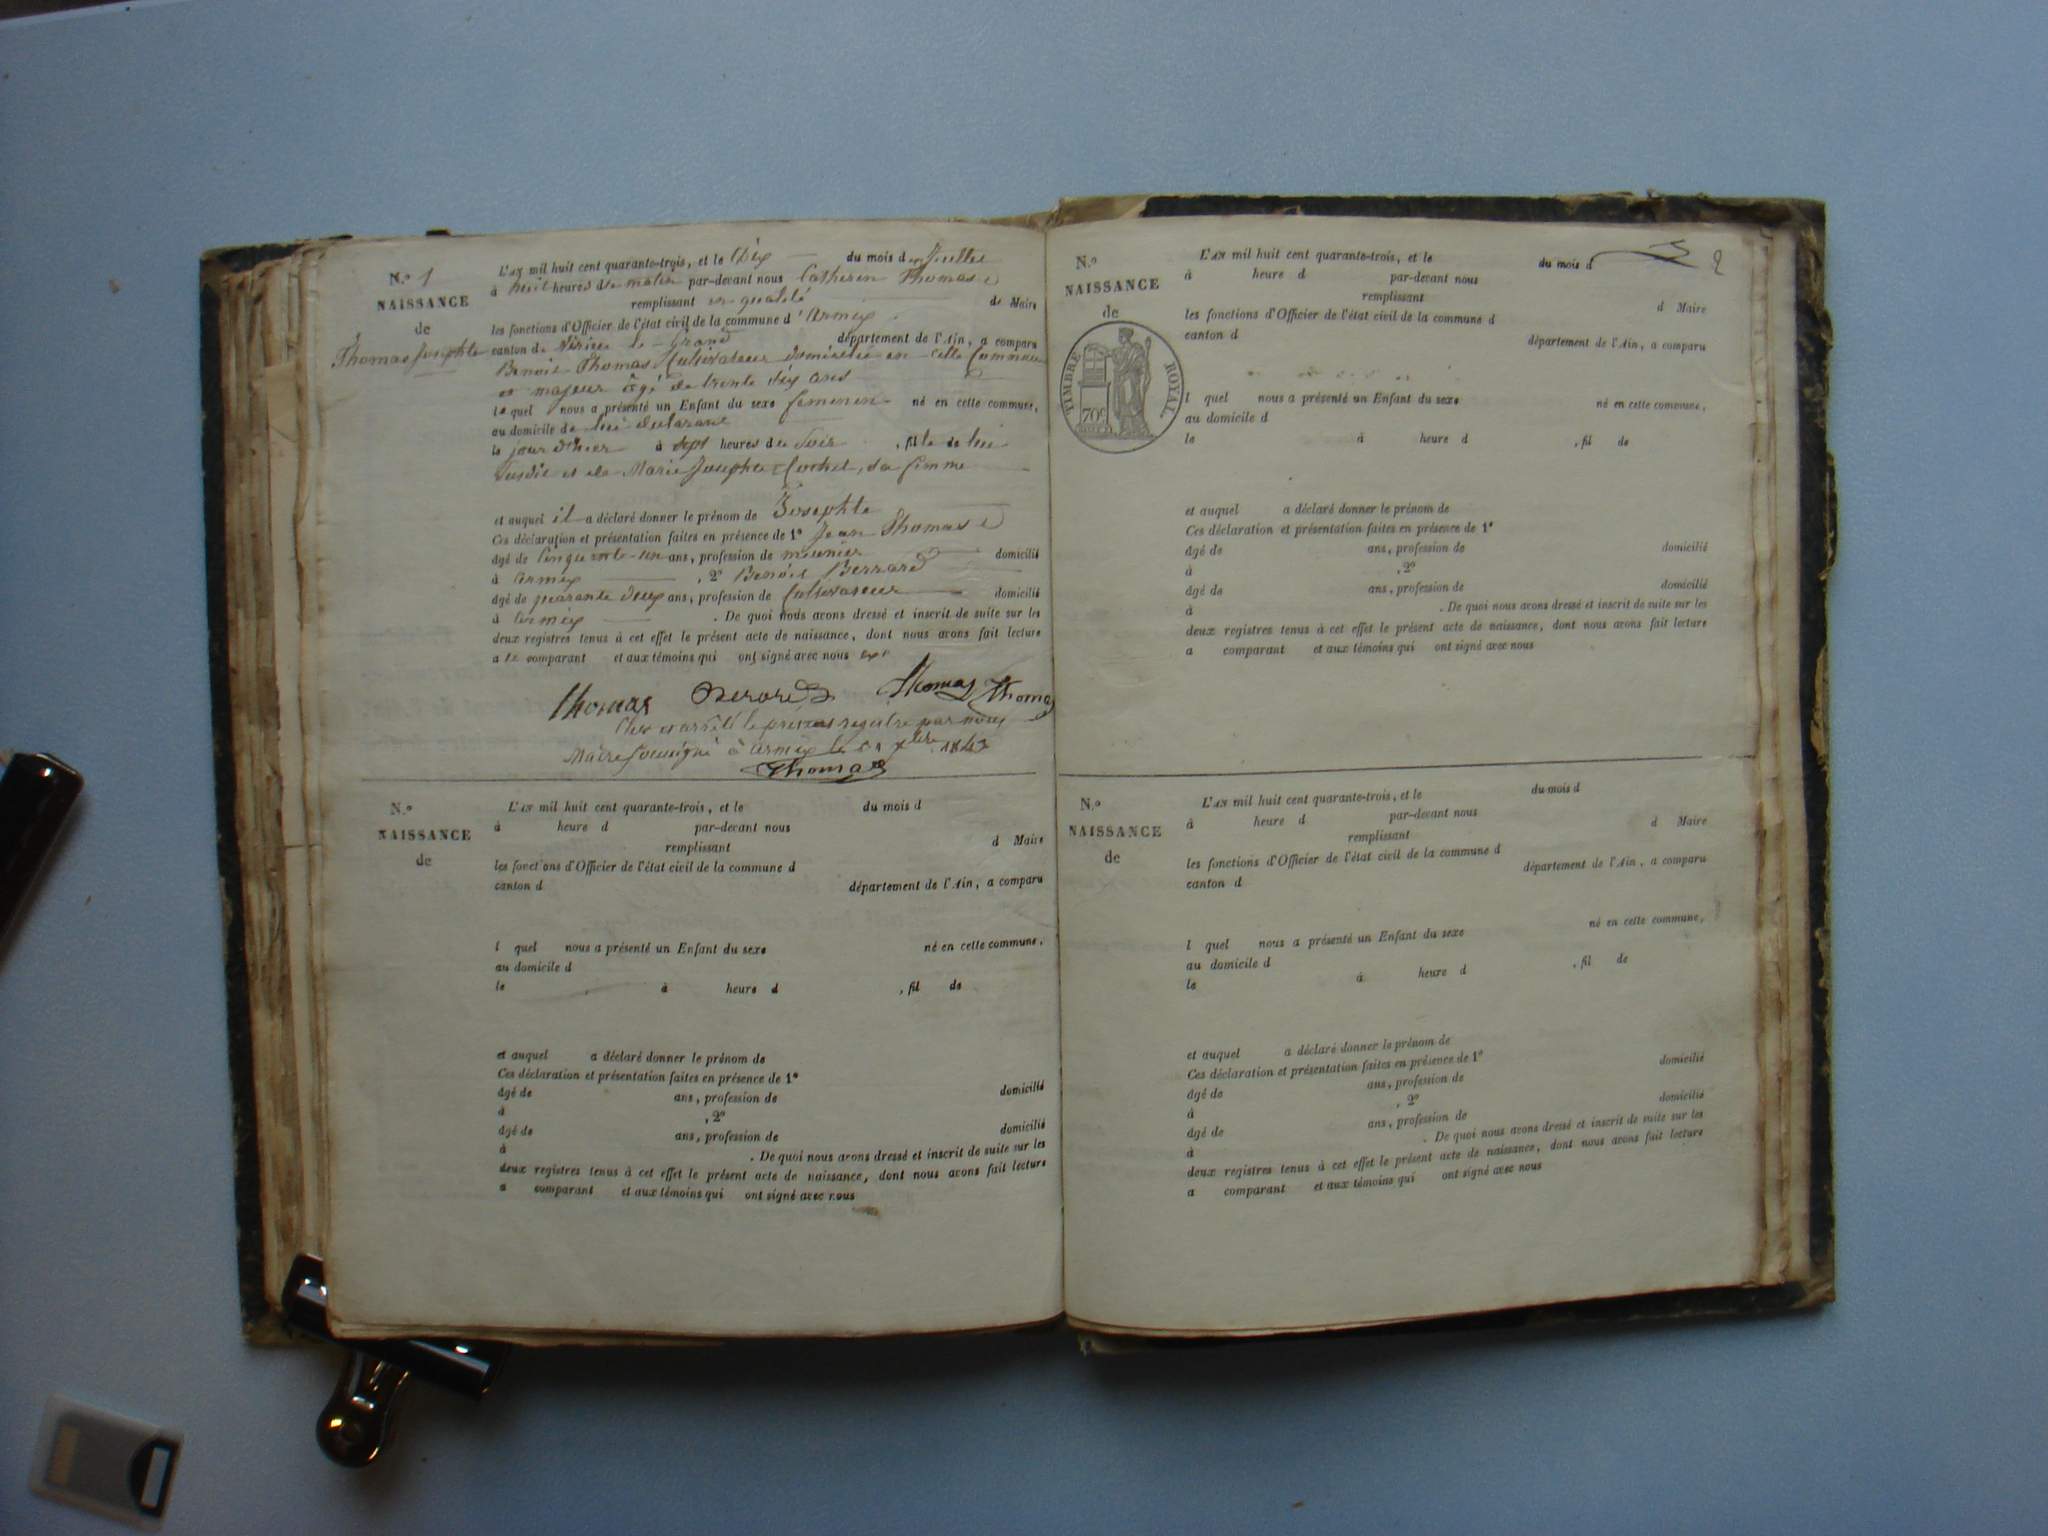 N.o 1
NAISSANCE
de
Thomas Josephte
L'AN mil huit cent quarante-trois, et le Dix du mois de Juillet
à huit heures du matin par-devant nous Catherin Thomas
remplissant en qualité de Maire
les fonctions d'Officier de l'état civil de la commune d'Armix
canton de Virieu le Grand département de l'Ain, a comparu
Benoit Thomas Cultivateur domicilié en cette Commune
et majeur âgé de trente six ans
lequel nous a présenté un Enfant du sexe feminin né en cette commune,
au domicile de lui declarant
le jour d'hier à sept heures du soir, fille de lui
susdit et de Marie Josephte Cochet, sa femme
et auquel il a déclaré donner le prénom de Josephte
Ces déclaration et présentation faites en présence de 1º Jean Thomas
âgé de cinquante-un ans, profession de meunier domicilié
à Armix, 2º Benoit Berrard
âgé de quarante deux ans, profession de Cultivateur domicilié
à Armix. De quoi nous avons dressé et inscrit de suite sur les
deux registres tenus à cet effet le présent acte de naissance, dont nous avons fait lecture
a le comparant et aux témoins qui ont signé avec nous
Thomas Berard Thomas Thomas
Clos et arrêté le présent registre par nous
Maire soussigné à Armix le 31 Xbre 1843
Thomas
N.o
NAISSANCE
de
L'AN mil huit cent quarante-trois, et le du mois d
à heure d par-devant nous
remplissant d Maire
les fonctions d'Officier de l'état civil de la commune d
canton d département de l'Ain, a comparu
l quel nous a présenté un Enfant du sexe né en cette commune,
au domicile d
le à heure d , fil de
et auquel a déclaré donner le prénom de
Ces déclaration et présentation faites en présence de 1º
âgé de ans, profession de domicilié
à , 2º
âgé de ans, profession de domicilié
à . De quoi nous avons dressé et inscrit de suite sur les
deux registres tenus à cet effet le présent acte de naissance, dont nous avons fait lecture
a comparant et aux témoins qui ont signé avec nous
2
N.o
NAISSANCE
de
TIMBRE ROYAL
70c
L'AN mil huit cent quarante-trois, et le du mois d
à heure d par-devant nous
remplissant d Maire
les fonctions d'Officier de l'état civil de la commune d
canton d département de l'Ain, a comparu
l quel nous a présenté un Enfant du sexe né en cette commune,
au domicile d
le à heure d , fil de
et auquel a déclaré donner le prénom de
Ces déclaration et présentation faites en présence de 1º
âgé de ans, profession de domicilié
à , 2º
âgé de ans, profession de domicilié
à . De quoi nous avons dressé et inscrit de suite sur les
deux registres tenus à cet effet le présent acte de naissance, dont nous avons fait lecture
a comparant et aux témoins qui ont signé avec nous
N.o
NAISSANCE
de
L'AN mil huit cent quarante-trois, et le du mois d
à heure d par-devant nous
remplissant d Maire
les fonctions d'Officier de l'état civil de la commune d
canton d département de l'Ain, a comparu
l quel nous a présenté un Enfant du sexe né en cette commune,
au domicile d
le à heure d , fil de
et auquel a déclaré donner le prénom de
Ces déclaration et présentation faites en présence de 1º
âgé de ans, profession de domicilié
à , 2º
âgé de ans, profession de domicilié
à . De quoi nous avons dressé et inscrit de suite sur les
deux registres tenus à cet effet le présent acte de naissance, dont nous avons fait lecture
a comparant et aux témoins qui ont signé avec nous